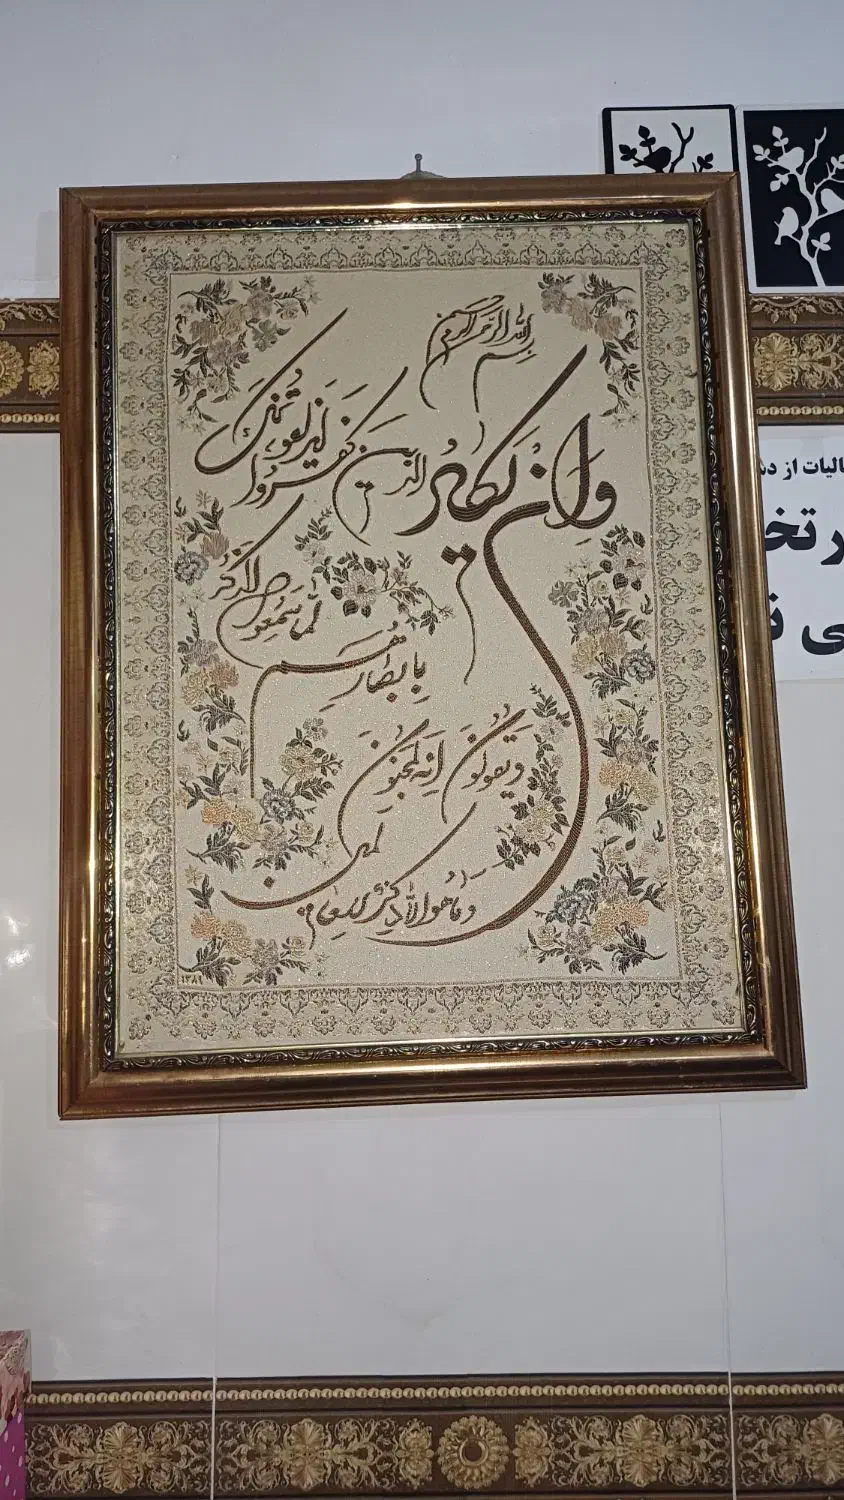 بسم الله الرحمن الرحیم
وَاِنْ یَکادُ الذینَ کَفَروُا لَیُزلِقوُنَکَ
بِاَبْصارِهِم لَمّا سَمِعوُا الذِکرَ
وَیَقولوُنَ اِنَهُ لَمَجنوُنَ
وَما هُوَ اِلّا ذِکرٌ لِلعالَمینَ
۱۳۸۹
الیات از